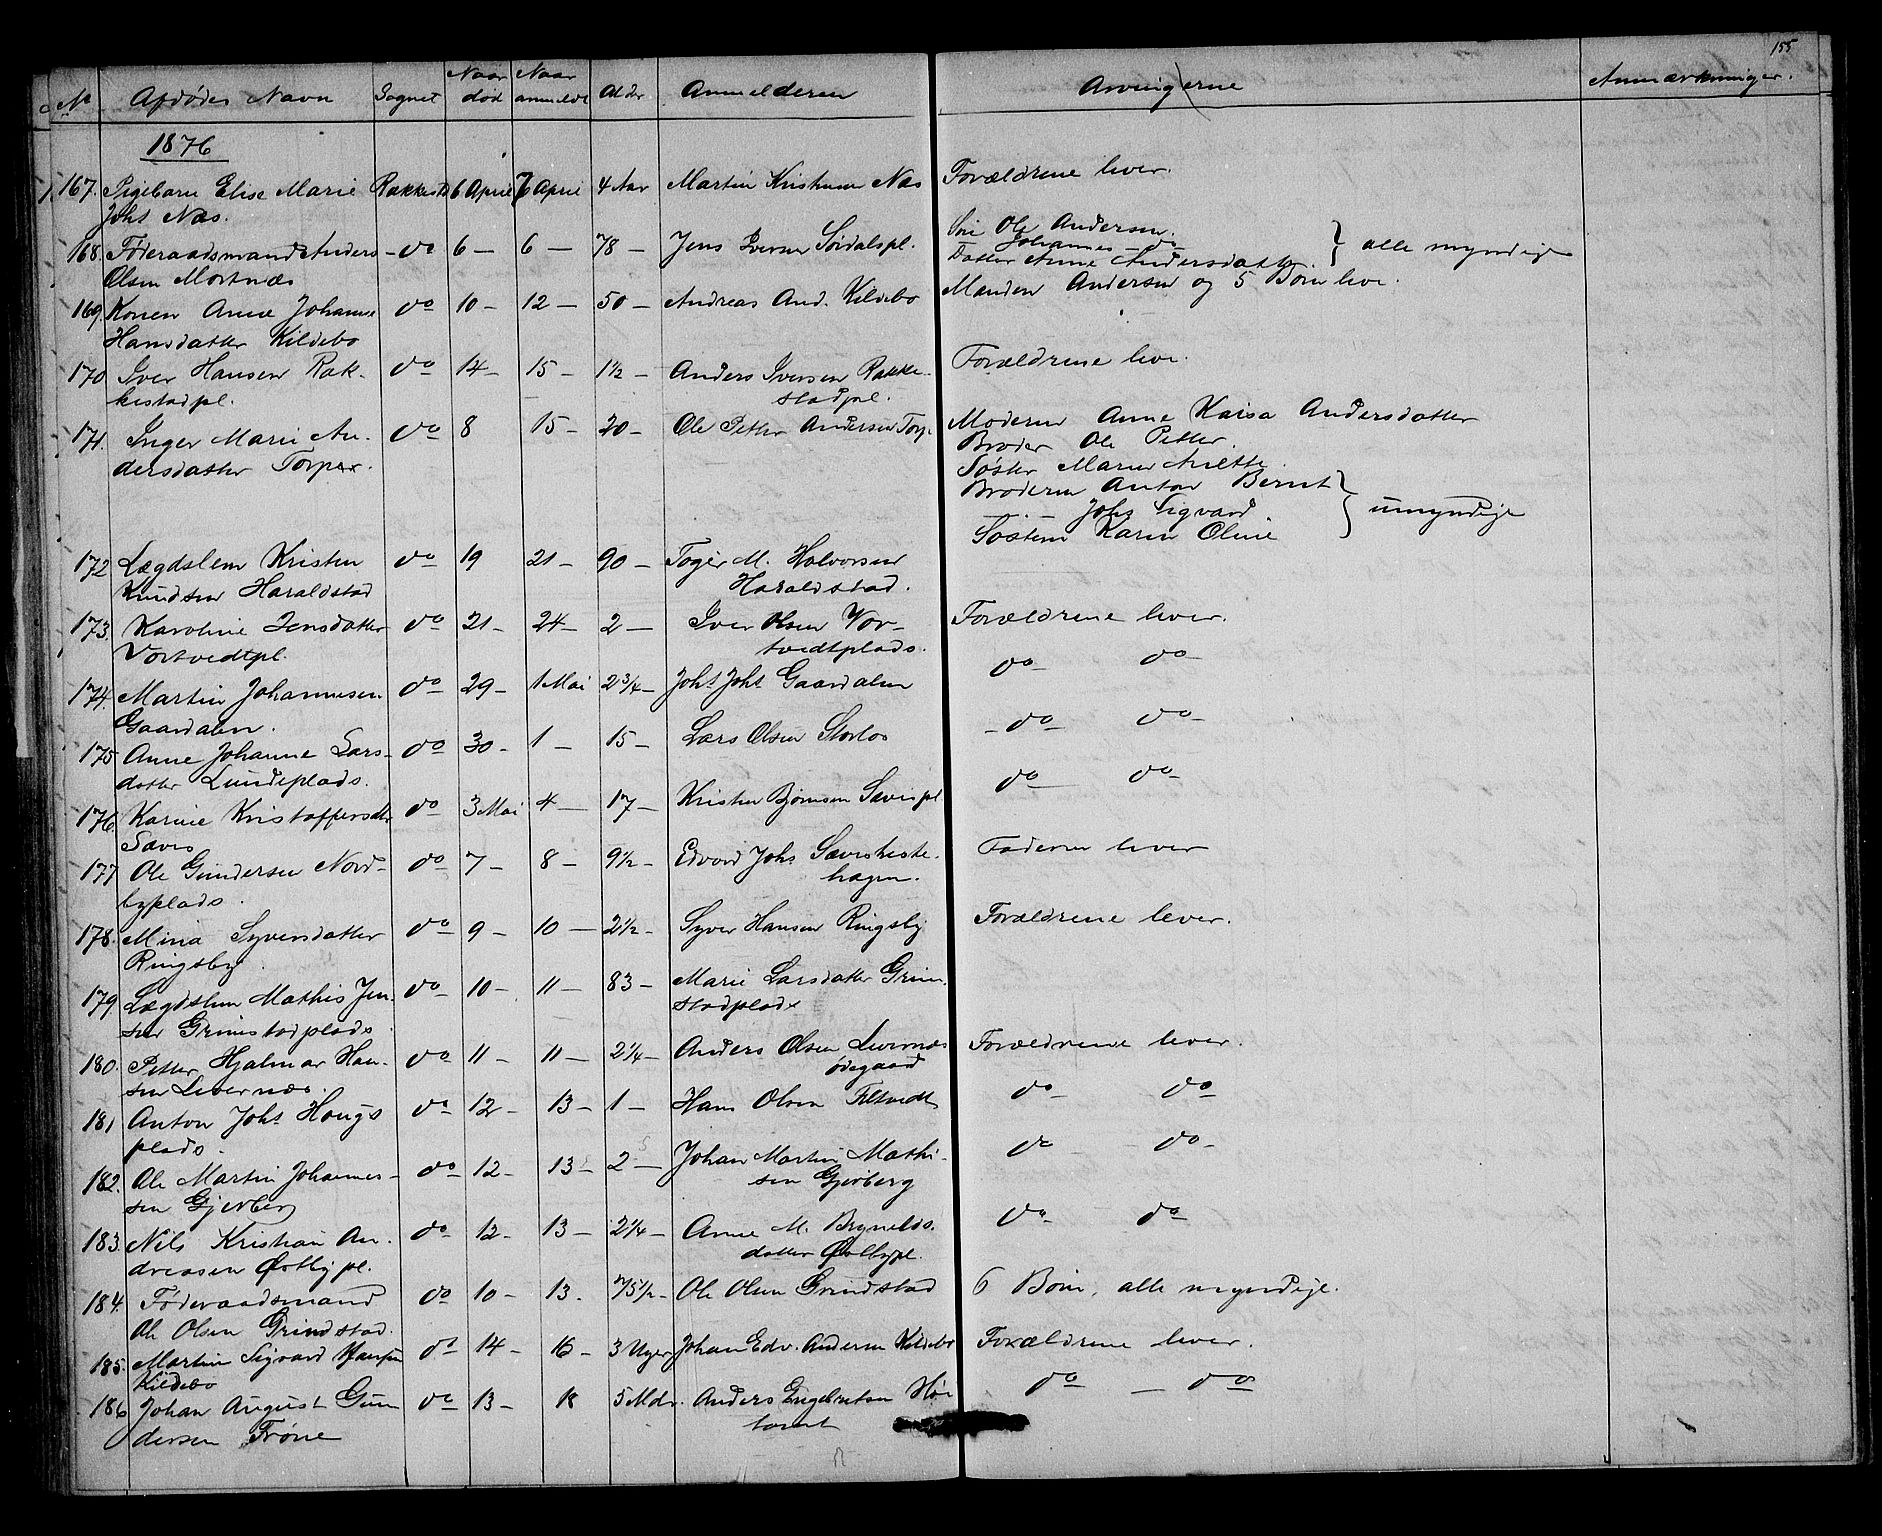 155
No Afdødes Navn Sognet Naar død Naar anmeldt Alder Anmelderen Arvingerne Anmærkninger.
1876
167. Pigebarn Elise Marie Rakkestd 6 April 7 April 4 Aar Martin Kristensen Næs Forældrene lever.
Joht Næs.
168. Føderaadsmand Anders do 6 6 78 Jens Iversen Sørdalspl. Søn Ole Andersen
Olsen Mortnæs Johannes do
Datter Anne Andersdatter } alle myndige
169. Konen Anne Johanne do 10 12 50 Andreas And. Kildebo Manden Andersen og 5 Børn leve.
Hansdatter Kildebo
170 Iver Hansen Rak- do 14 15 1½ Anders Iversen Rakke- Forældrene leve.
kestadpl. stadpl.
171. Inger Marie An- do 8 15 20 Ole Petter Andersen Torp. Moderen Anne Kaisa Andersdatter
dersdatter Torper. Broder Ole Petter.
Søster Maren
Broderen Anton Bernt
Johs Sigvard } umyndige
Søsteren Karen Oline
172 Lægdslem Kristen do 19 21 90 Toger M. Halvorsen
Knudsen Haraldstad Haraldstad.
173. Karoline Jensdatter do 21 24 2 Iver Olsen Vor- Forældrene lever.
Vortvedtpl. tvedtplads.
174. Martin Johannesen do 29 1 Mai 2¾ Joht Joht Gaardalen do do
Gaardalen.
175 Anne Johanne Lars- do 30 1 15 Lars Olsen do do
datter Lundeplads.
176. Karine Kristoffersdtr do 3 Mai 4 17 Kristen Bjørnsen Sævispl do do
Sævis
177 Ole Gundersen Nord- do 7 8 9½ Edvard Johs Sævisheste- Faderen lever
byplads. hagen.
178. Mina Syversdatter do 9 10 2½ Syver Hansen Ringsby Forældrene lever.
Ringsby.
179. Lægdslem Mathis Jen- do 10 11 83 Marie Larsdatter Grim-
sen Grimstadplads. stadplads
180. Petter Hjalmar Han- do 11 11 2¼ Anders Olsen Levernæs Forældrene lever.
sen Levernæs. ødegaard
181 Anton Joht Haugs do 12 13 1 Hans Olsen Filtvedt do do
plads.
182. Ole Martin Johannes- do 12 13 2 Johan Martin Mathi- do do
sen Gjerberg sen Gjerberg
183. Nils Kristian An- do 12 13 2¼ Anne M. Brynilds- do do
dreasen Østbypl. datter Østbypl.
184. Føderaadsmand do 10 13. 75½ Ole Olsen Grindstad 6 Børn, alle myndige.
Ole Olsen Grindstad.
185. Martin Sigvard Hansen do 14 16 3 Uger Johan Edv. Andersen Kildebo Forældrene lever.
Kildebo
186 Johan August Gun do 13 18 5 Mdr. Anders Engebretsen Høi do do
dersen Frøne tomt